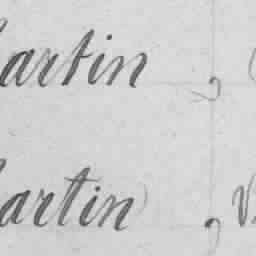 artin ,
artin , V